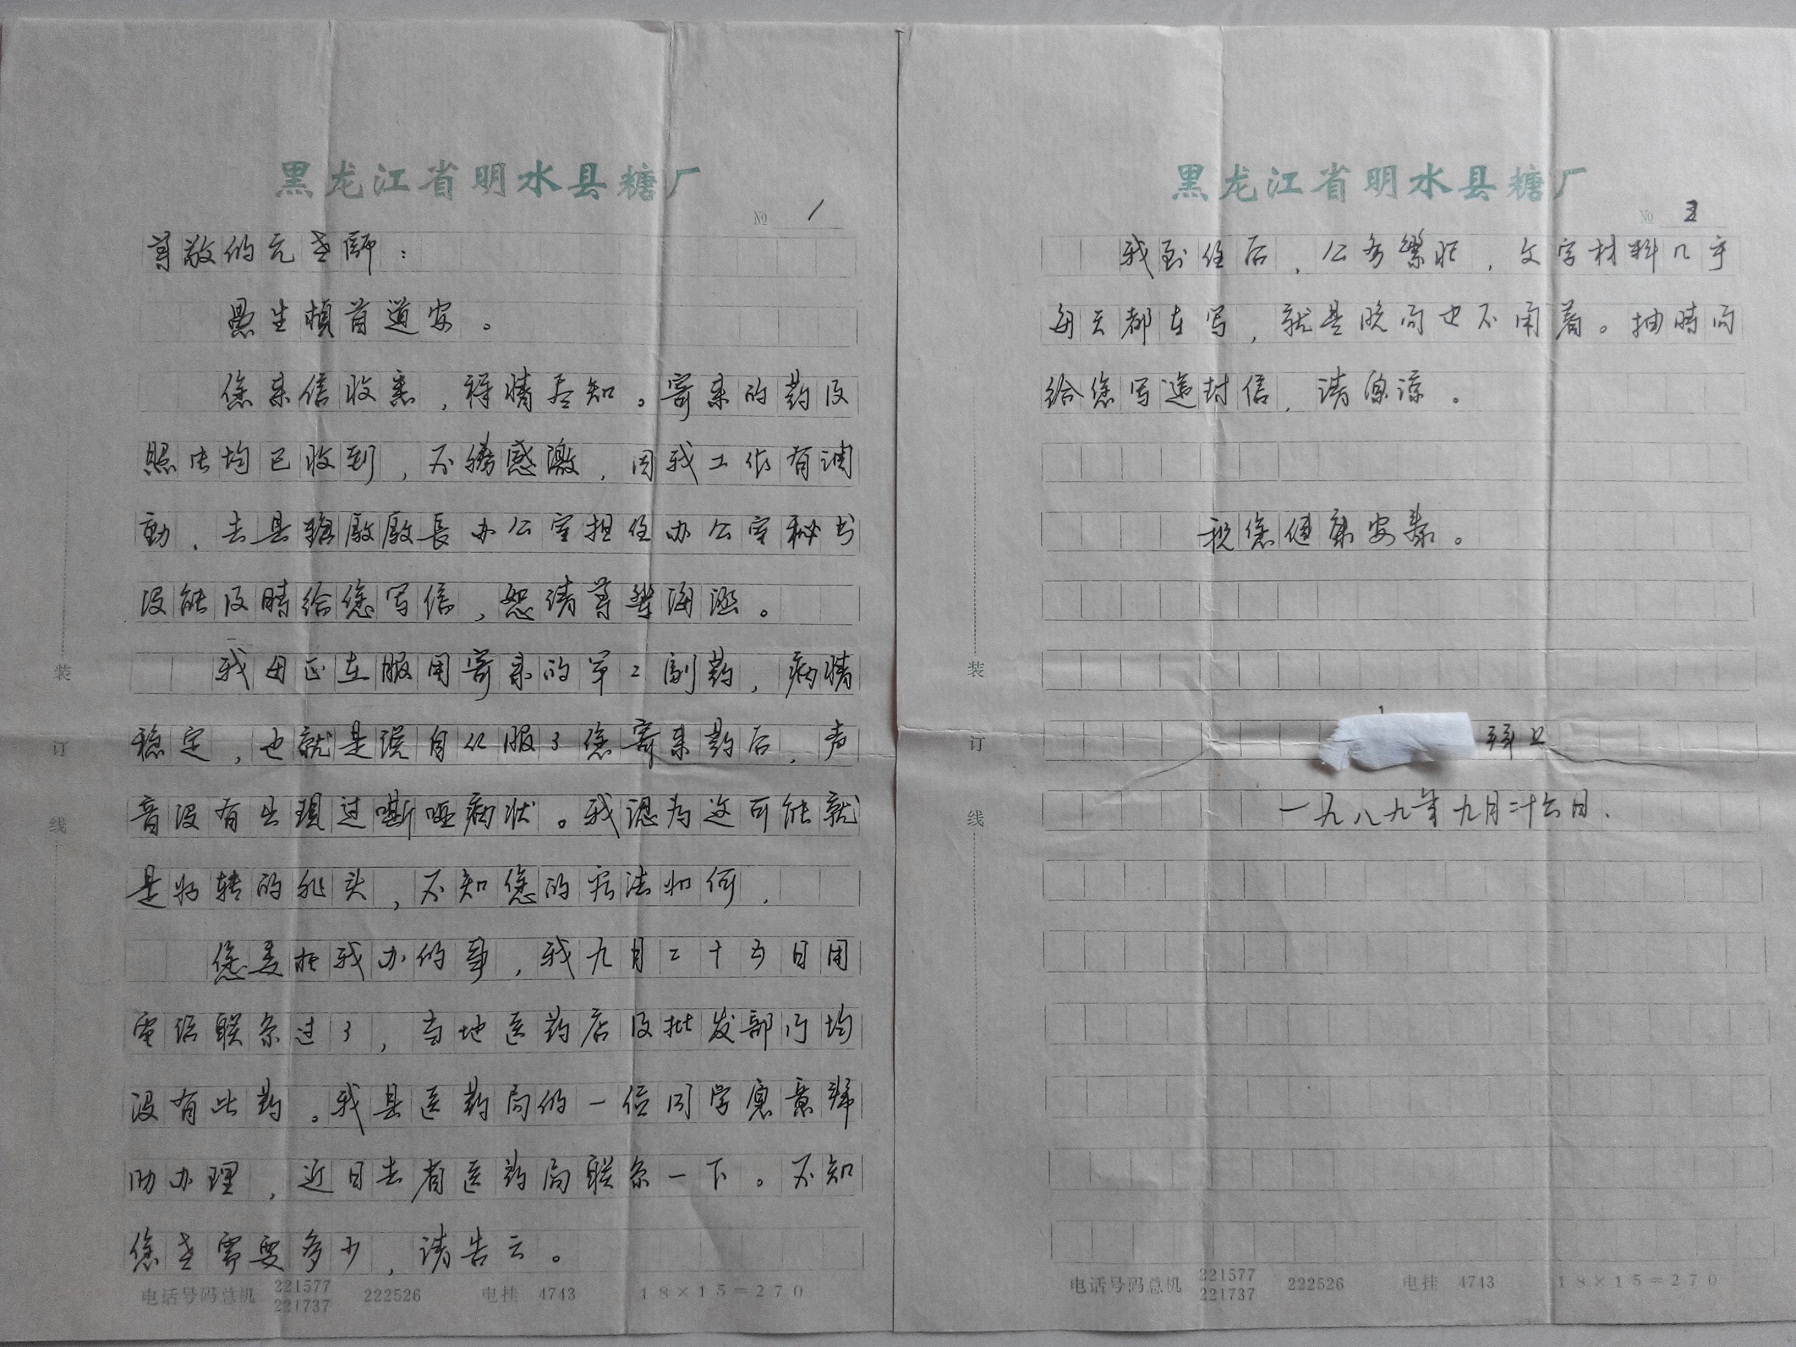 黑龙江省明水县糖厂
№ 1
尊敬的元老師：
愚生横首道安。
您来信收悉，祥情尽知。寄来的药及
照片均已收到，不勝感激，因我工作有调
動，去县糖廠廠長办公室担任办公室秘书
没能及時给您写信，恕请尊举海涵。
我母正在服用寄来的第二副药，病情
稳定，也就是误自从服了您寄来药后，声
音没有出現过嘶哑病状。我認为这可能就
是好转的兆头，不知您的看法如何.
您委托我办的事，我九月二十五日用
電话联系过了，当地医药店及批发部门均
没有此药。我县医药局的一位同学愿意幫
助办理，近日去省医药局联系一下。不知
您老需要多少，请告云。
装
订
线
电话号码总机 221577 221737 222526 电挂 4743 18×15=270
黑龙江省明水县糖厂
№ 2
我到任后，公务繁忙，文字材料几乎
每天都在写，就是晚间也不闲着。抽時间
给您写這封信，请原谅。
祝您健康安泰。
拜上
一九八九年九月二十六日.
装
订
线
电话号码总机 221577 221737 222526 电挂 4743 18×15=270